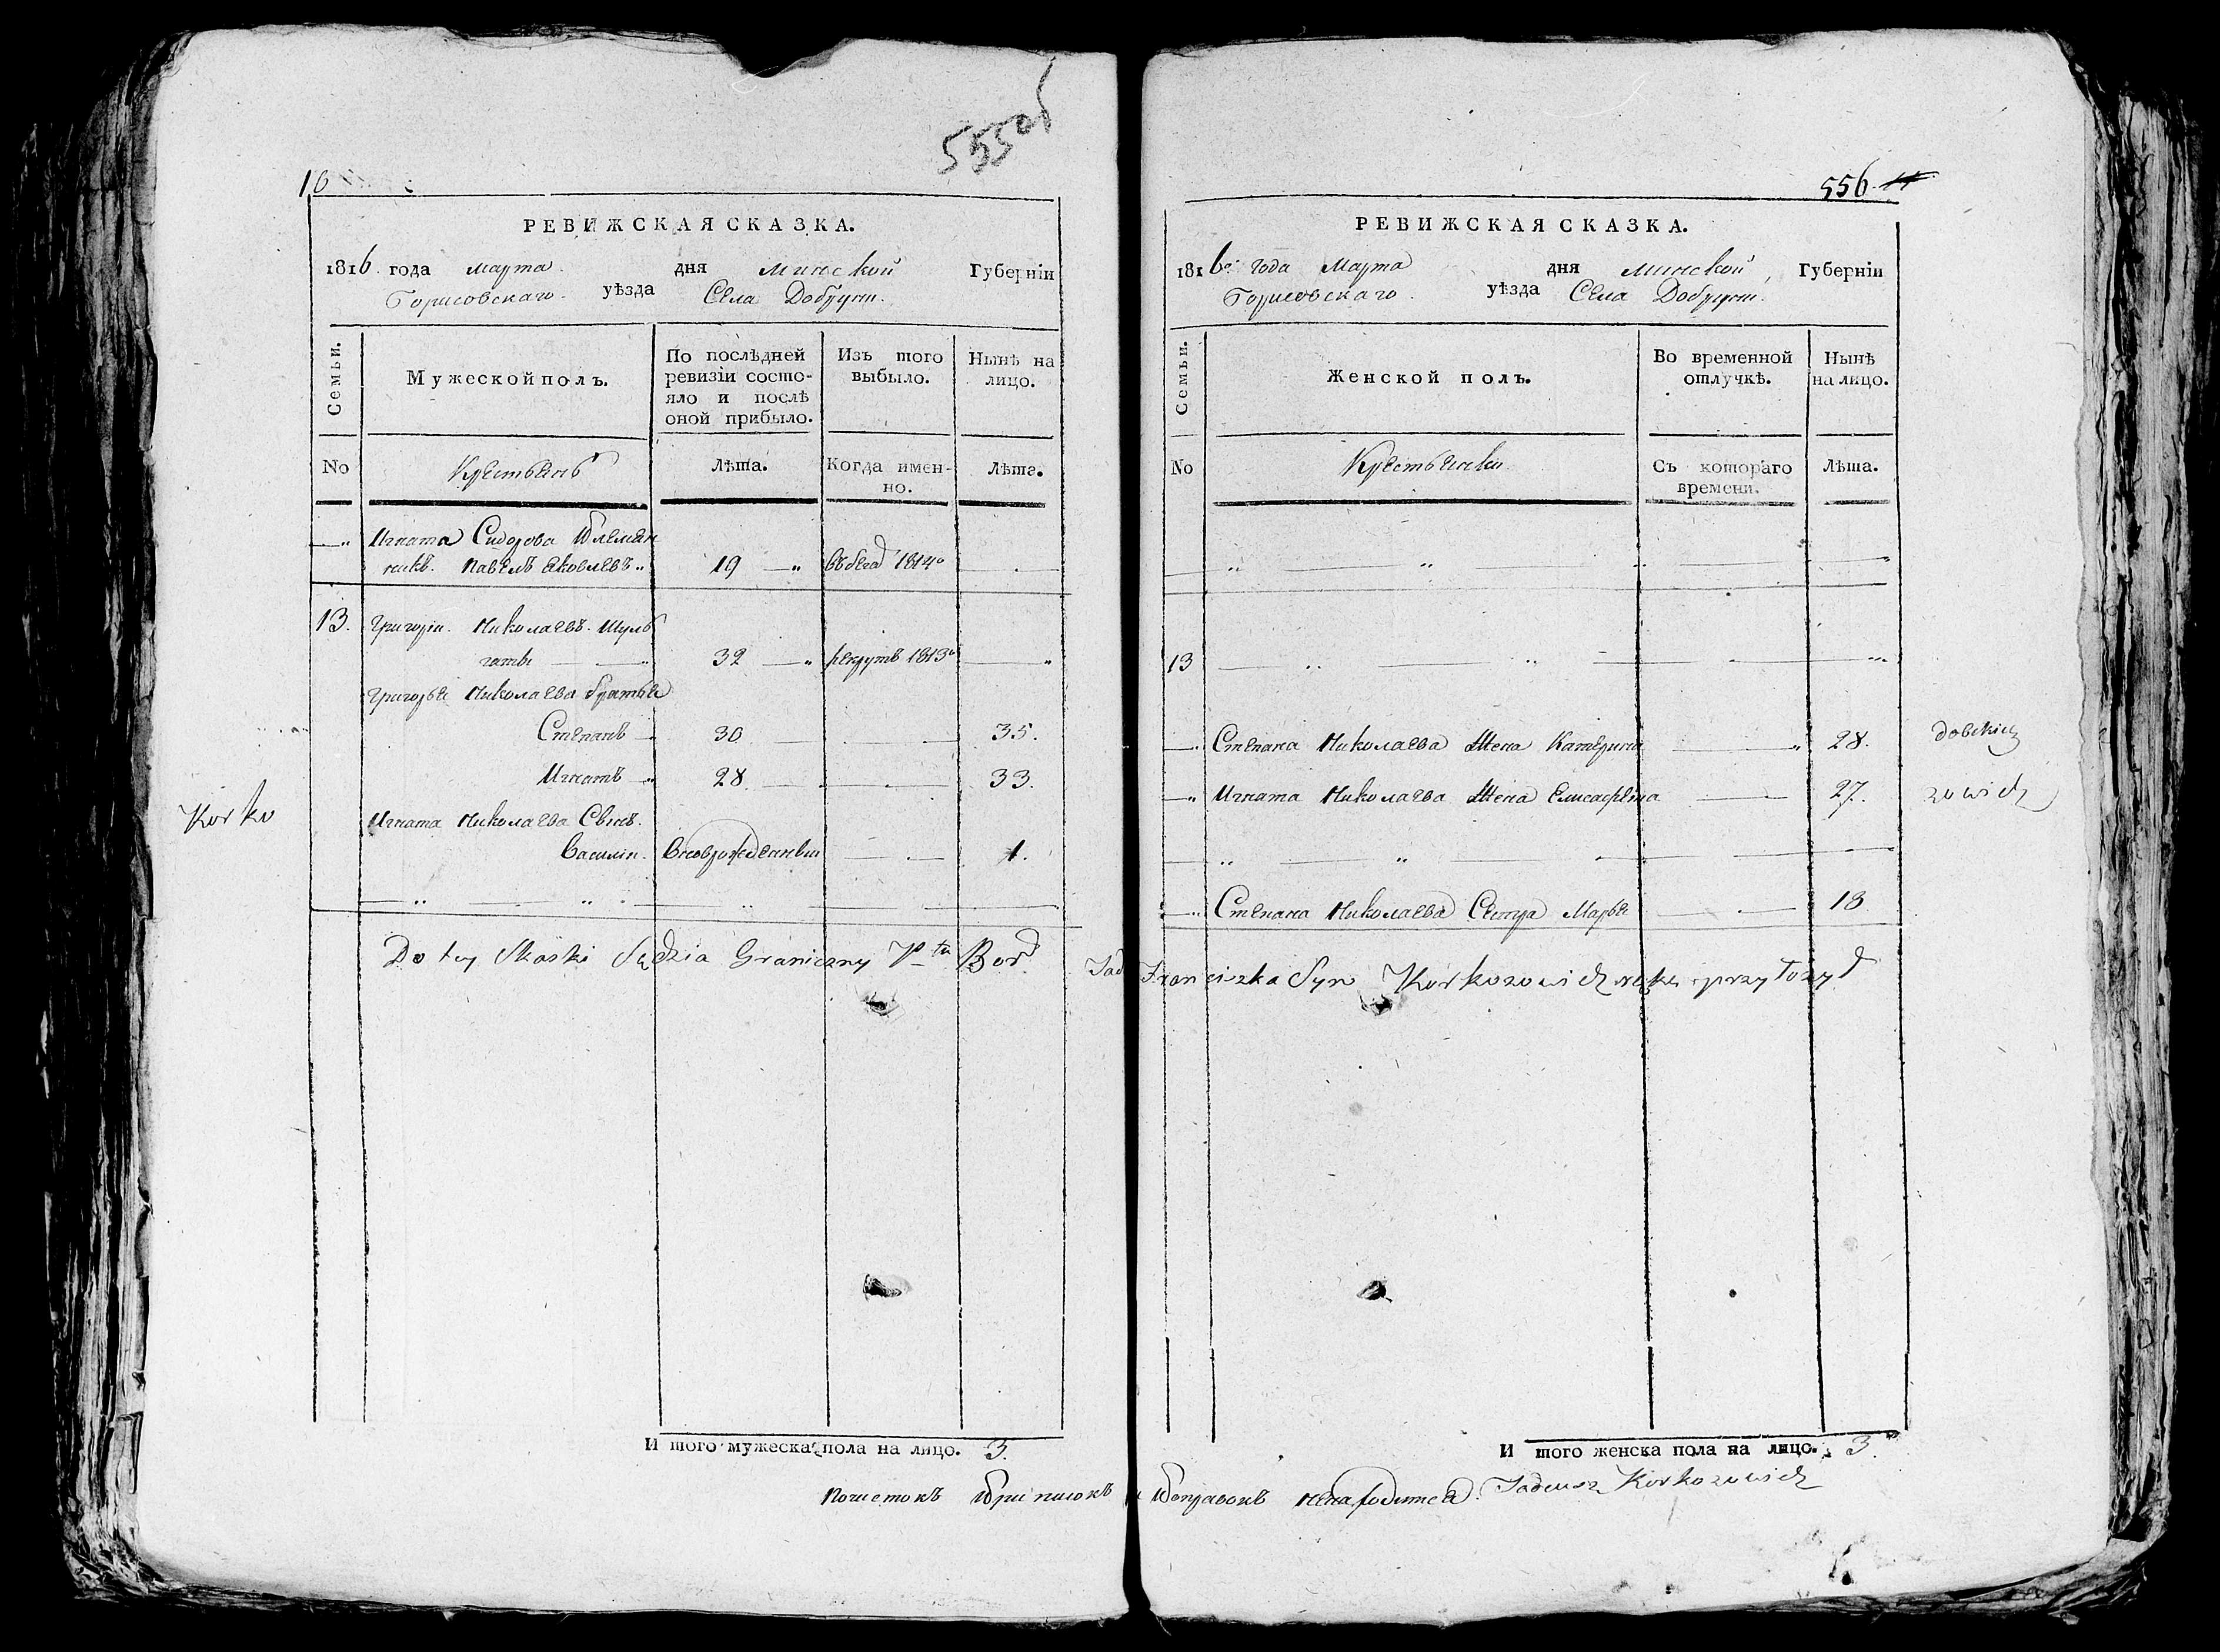 555об
10
РЕВИЖСКАЯ СКАЗКА.
1816 года марта дня Минской Губерніи
Борисовскаго уѣзда Села Добрун.
Семьи.
Мужеской полъ.
По послѣдней ревизіи состо-
яло и послѣ оной прибыло.
Изъ того выбыло.
Нынѣ на лицо.
No
Крестьянъ
Лѣта.
Когда имен-
но.
Лѣта.
Игната Сидорова Племян
никъ. Павелъ Яковлевъ 19 въ бега 1814
13. Григорiи. Николаевъ. Шуль
гатъ 32 рекрутъ 1813
Григорья Николаева братья
Степанъ 30 35.
Игнатъ 28 33.
Korko
Игната Николаева Сынъ.
Василiи. Вновьрожденныи 1.
Do tey Skaski Sędzia Graniczny Ptu Bor
И того мужеска пола на лицо. 3.
Почистокъ Приписокъ
556.
РЕВИЖСКАЯ СКАЗКА.
1816 года Марта дня Минской Губерніи
Борисовскаго уѣзда Села Добрун.
Семьи.
Женской полъ.
Во временной отлучкѣ.
Нынѣ на лицо.
No
Крестьянки
Съ котораго времени.
Лѣта.
13
Степана Николаева Жена Катерина 28.
Игната Николаева Жена Елисавѣта 27.
zowicz
Степана Николаева Сестра Марья 18
Tad Franciszka Syn Korkozowicz rękę przyłożył
И того женска пола на лицо. 3
и Поправокъ ненаходится. Tadeusz Korkozowicz